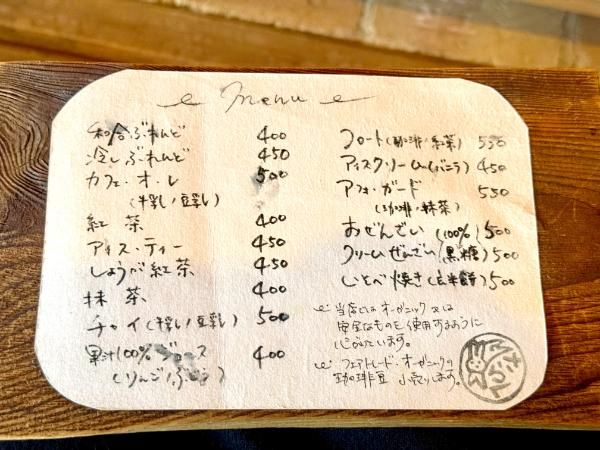 menu
和合ぶれんど 400
冷しぶれんど 450
カフェ・オ・レ 500
(牛乳/豆乳)
紅茶 400
アイス・ティー 450
しょうが紅茶 450
抹茶 400
チャイ(牛乳/豆乳) 500
果汁100%ジュース 400
(りんご/ぶどう)
フロート(珈琲/紅茶) 550
アイスクリーム(バニラ) 450
アフォ・ガード 550
(珈琲/抹茶)
おぜんざい (100%) 500
クリームぜんざい(黒糖) 500
いそべ焼き(玄米餅) 500
当店ではオーガニック又は
安全なものを使用するように
心がけています。
フェアトレード・オーガニックの
珈琲豆 小売りします。